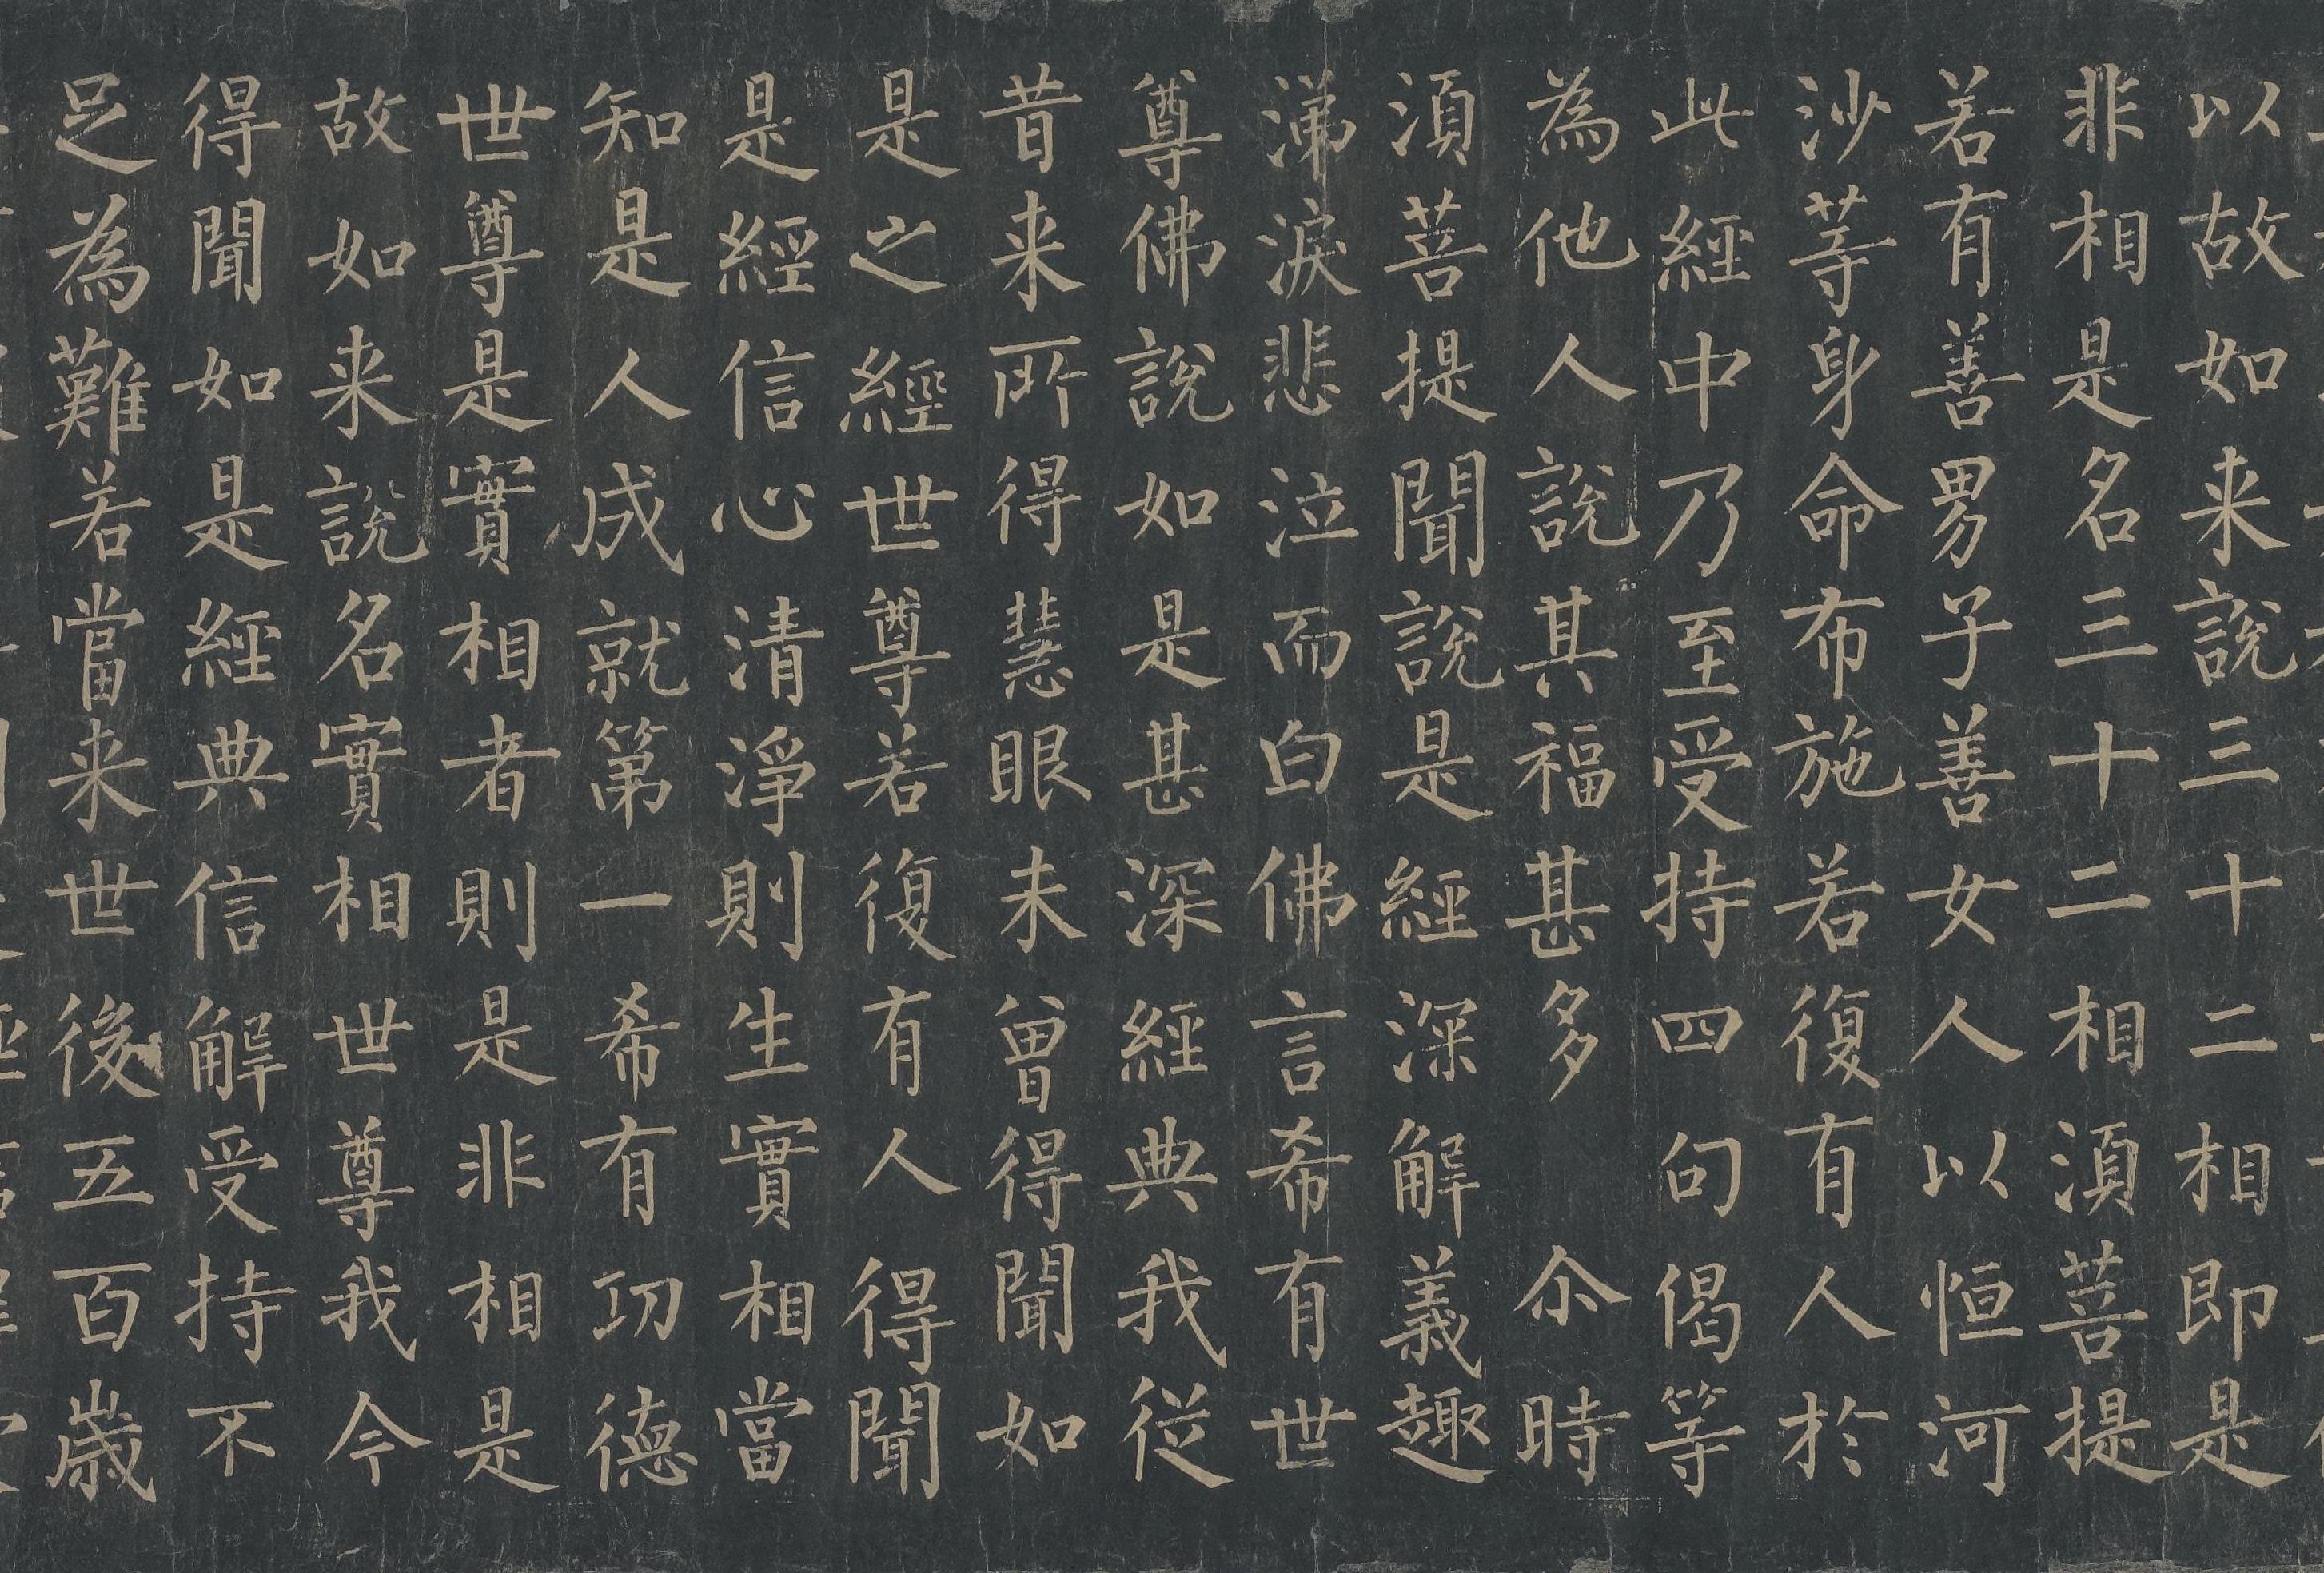 以故如来說三十二相即是
非相是名三十二相湏菩提
若有善男子善女人以恒河
沙等身命布施若復有人於
此經中乃至受持四句偈等
為他人說其福甚多　尒時
湏菩提聞說是經深解義趣
涕淚悲泣而白佛言希有世
尊佛說如是甚深經典我從
昔来所得慧眼未曾得聞如
是之經世尊若復有人得聞
是經信心清淨則生實相當
知是人成就第一希有功德
世尊是實相者則是非相是
故如来說名實相世尊我今
得聞如是經典信解受持不
足為難若當来世後五百歲